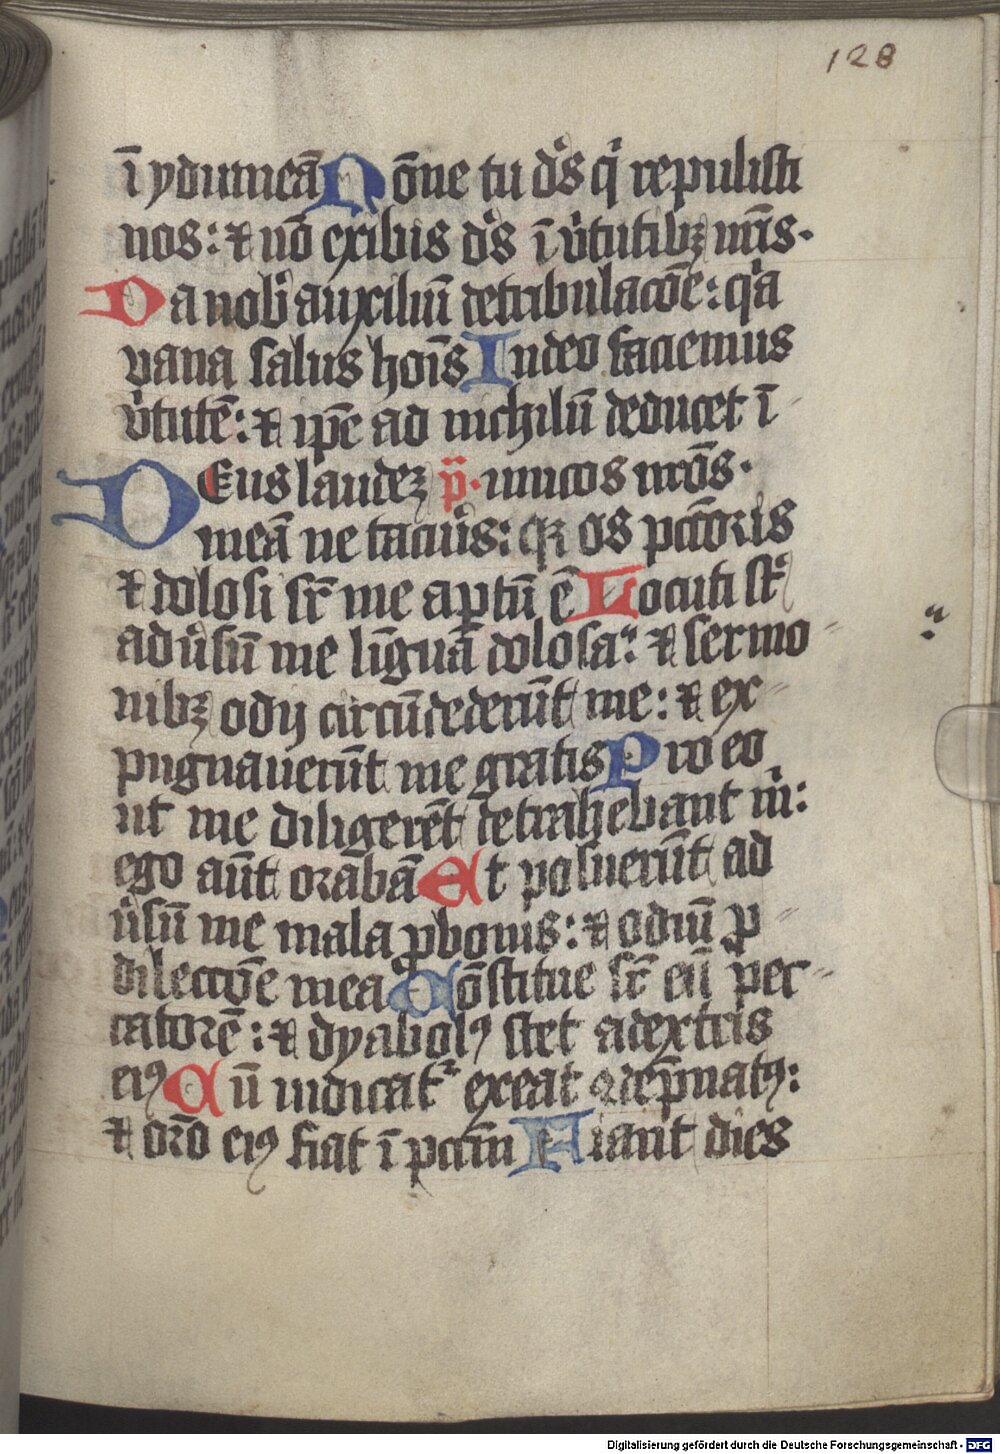 128
ī ydumeā Nōne tu ds̓ qi̓ repulisti
nos: ⁊ nō exibis ds̓ ī v̓tutibꝫ nr̄is.
Da nob̓ auxiliū de tribulacōe: qi̓a
vana salus hoīs In deo faciemus
v̓tutē: ⁊ ip̄e ad nichilū deducet ī
DEus laudeꝫ p̄. imicos nr̄os.
meā ne tacu̓is: os pc̄c̄oris
⁊ dolosi sr̄ me aꝑtū ē Locuti st̄
adu̓sū me līguā dolosa: ⁊ sermo
nibꝫ odij circūdederūt me: ⁊ ex
pugnauerūt me gratis Pro eo
ut me diligerēt detrahebant m̓:
ego aūt orabā Et posuerūt ad
u̓sū me mala ꝓ bonis: ⁊ odiū ꝓ
dileccōe mea Cōstitue sr̄ eū pec
catorē: ⁊ dyabolꝰ stet a dextris
eiꝰ Cū iudicat᷑ exeat ꝯdēpnatꝰ:
⁊ or̄o eiꝰ fiat ī pcc̄m Fiant dies
Digitalisierung gefördert durch die Deutsche Forschungsgemeinschaft - DFG